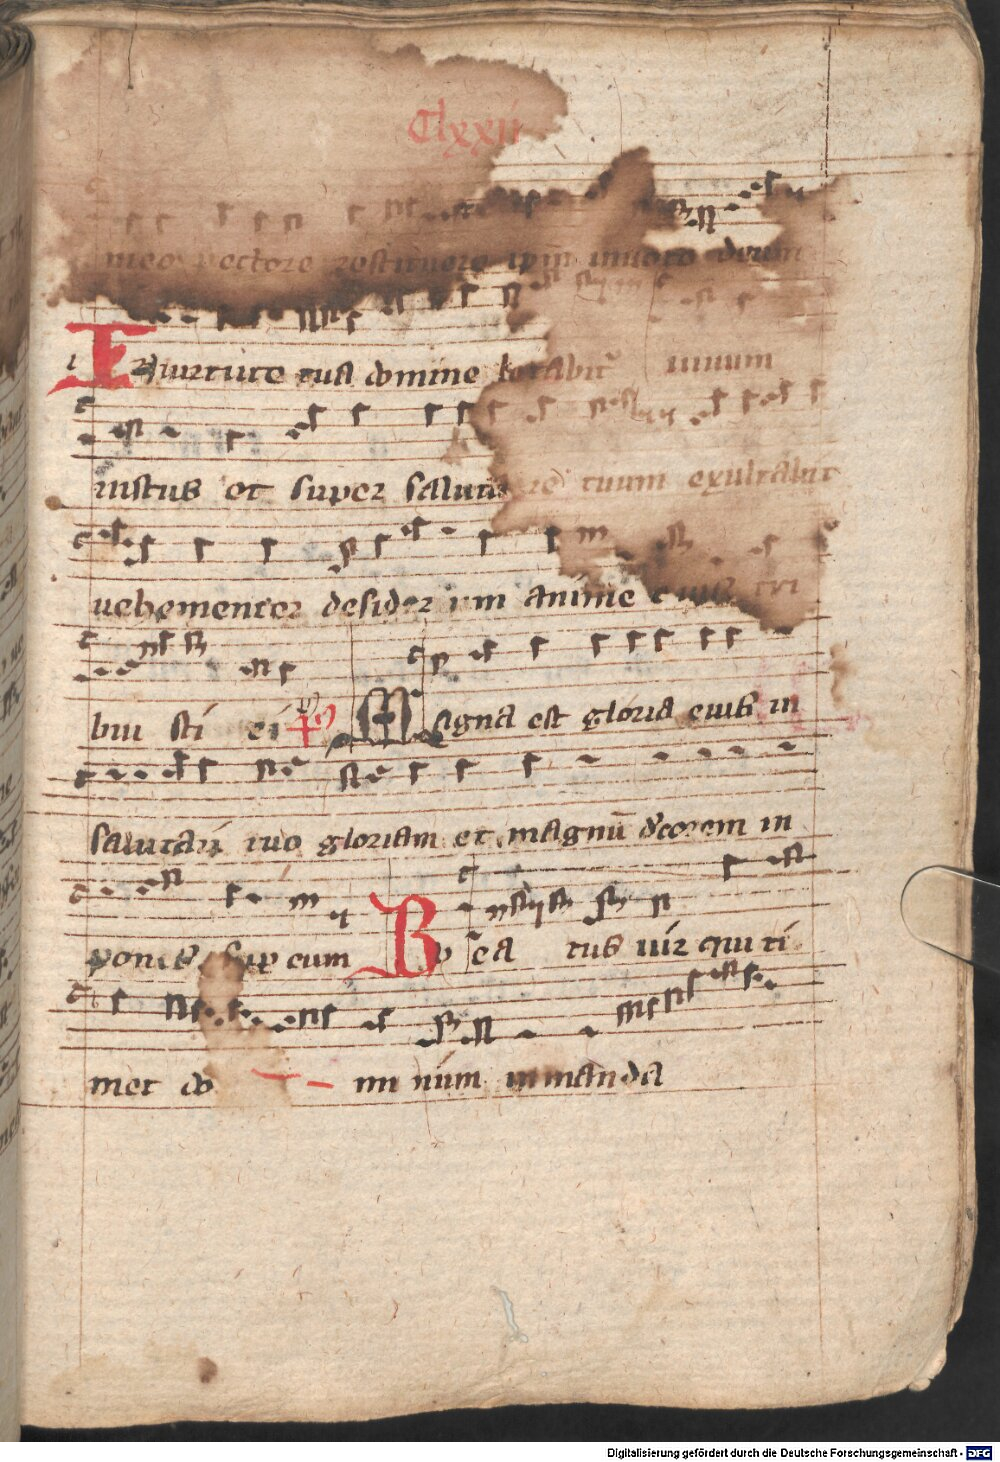 Clxxii
meo pectore restituere ipm inuoco deum
In uirtute tua domine letabitr
iustus et super salutare tuum exultabit
uehementer desiderium anime eius tri
buisti ei Magna est gloria eius in
salutari tuo gloriam et magnū decorem in
pones sup eum Beatus uir qui ti
met dominum in manda
Digitalisierung gefördert durch die Deutsche Forschungsgemeinschaft - DFG